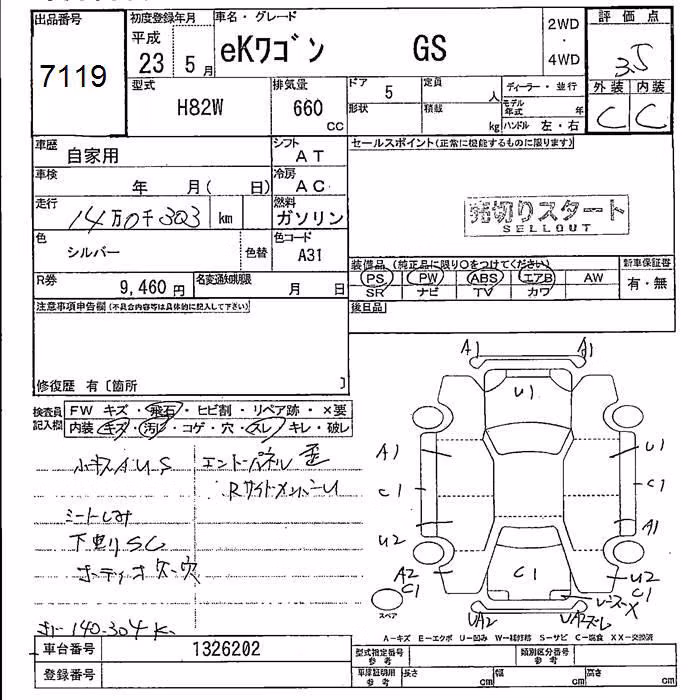 出品番号
7119
初度登録年月
平成
23 5月
車名・グレード
eKワゴン GS
2WD
・
4WD
評価点
3.5
外装 内装
C C
型式
H82W
排気量
660
cc
ドア
5
定員
人
形状
積載
kg
ディーラー・並行
モデル年式 年
ハンドル 左・右
車歴
自家用
シフト
AT
セールスポイント(正常に機能するものに限ります)
車検
年 月( 日)
冷房
AC
走行
14万0千303 km
燃料
ガソリン
売切りスタート
SELLOUT
色
シルバー
色替
色コード
A31
装備品 (純正品に限り○をつけてください)
PS PW ABS エアB AW
SR ナビ TV カワ
新車保証書
有・無
R券
9,460円
名変通知期限
月 日
後日品
注意事項申告欄(不具合内容等は具体的に記入して下さい)
修復歴 有〔箇所 〕
検査員
記入欄
FW キズ・飛石・ヒビ割・リペア跡・×要
内装・キズ・汚レ・コゲ・穴・スレ・キレ・破レ
小キズAUS
エンドパネル歪
RサイドメンバーU
シートしみ
下回りSC
オーディオケース穴
140.304K
A1 A1
U1
A1 U1
C1 C1
U2 A1
A2
C1
C1
U2
C1
UA2
スペア
A-キズ E-エクボ U-凹み W-補修跡 S-サビ C-腐食 XX-交換済
車台番号
1326202
登録番号
型式指定番号
参考
類別区分番号
参考
車庫証明用
参考
長さ cm
幅 cm
高さ cm